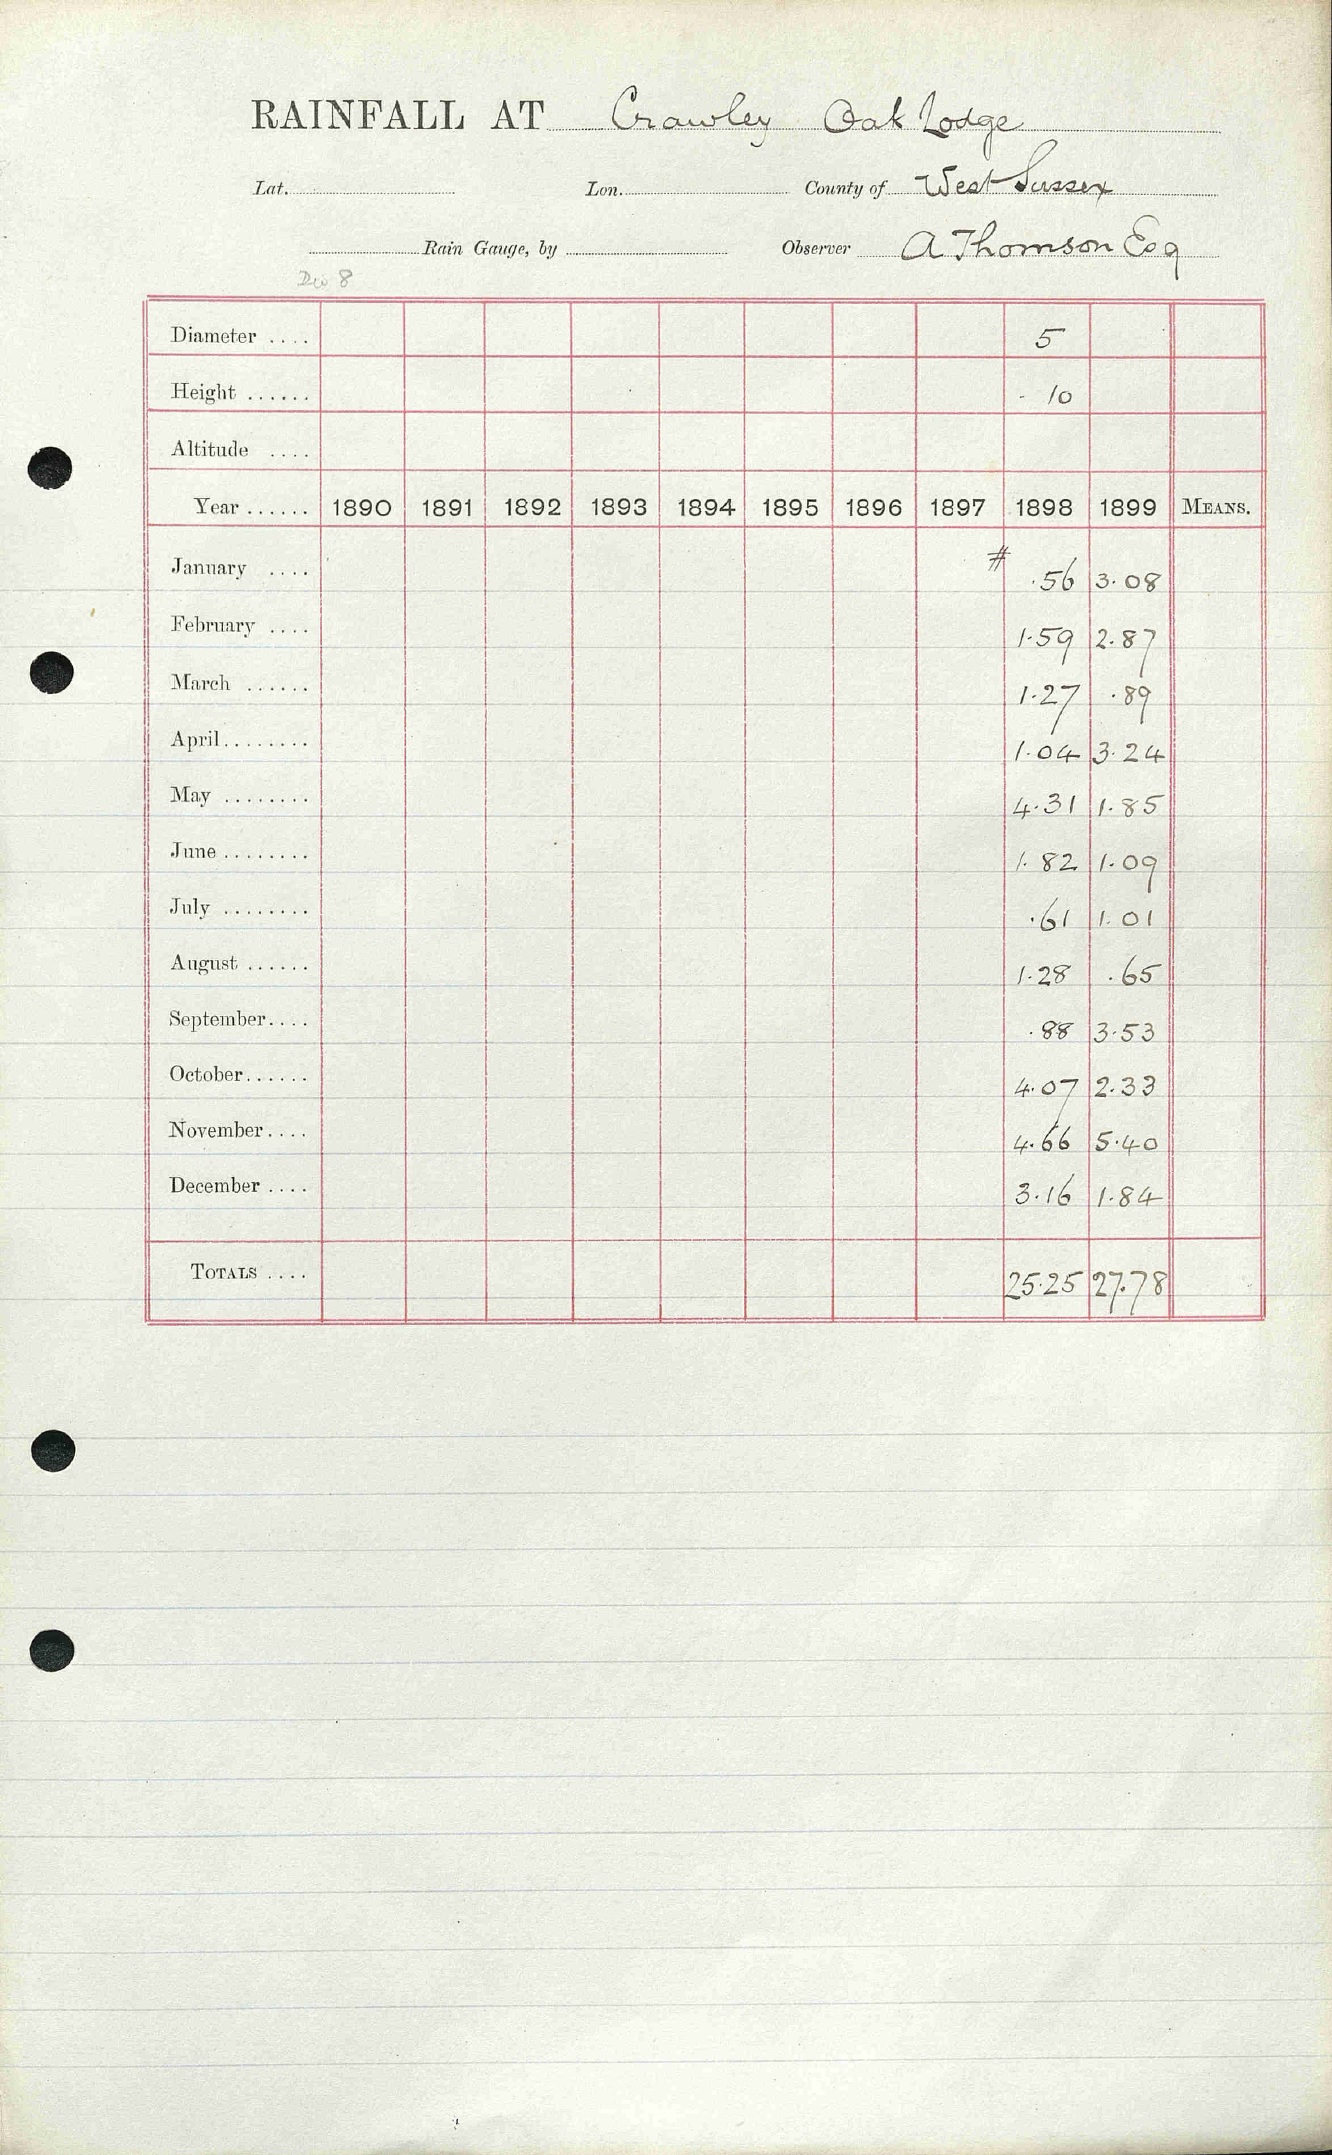 RAINFALL AT Crawley Oak Lodge
Lat. Lon. County of West Sussex
Rain Gauge, by Observer A Thomson Esq
Div 8
Diameter .... 5
Height ...... 10
Altitude ....
Year ...... 1890 1891 1892 1893 1894 1895 1896 1897 1898 1899 MEANS.
January .... # .56 3.08
February .... 1.59 2.87
March ...... 1.27 .89
April........ 1.04 3.24
May ........ 4.31 1.85
June ........ 1.82 1.09
July ........ .61 1.01
August ...... 1.28 .65
September.... .88 3.53
October...... 4.07 2.33
November.... 4.66 5.40
December .... 3.16 1.84
TOTALS .... 25.25 27.78